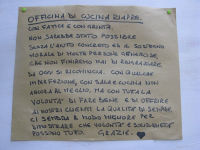 OFFICINA DI CUCINA RIAPRE.
CON FATICA E CON GRINTA.
NON SAREBBE STATO POSSIBILE
SENZA L'AIUTO CONCRETO ED IL SOSTEGNO
MORALE DI MOLTE PERSONE GENEROSE,
CHE NON FINIREMO MAI DI RINGRAZIARE
DA OGGI SI RICOMINCIA. CON QUALCHE
IMPERFEZIONE, CON SALA E CUCINA NON
ANCORA AL MEGLIO, MA CON TUTTA LA
VOLONTÀ DI FARE BENE E DI OFFRIRE
AI NOSTRI CLIENTI LA QUALITÀ DI SEMPRE.
CI SEMBRA IL MODO MIGLIORE PER
DIMOSTRARE CHE VOLONTÀ E SOLIDARIETÀ
POSSONO TUTTO. GRAZIE